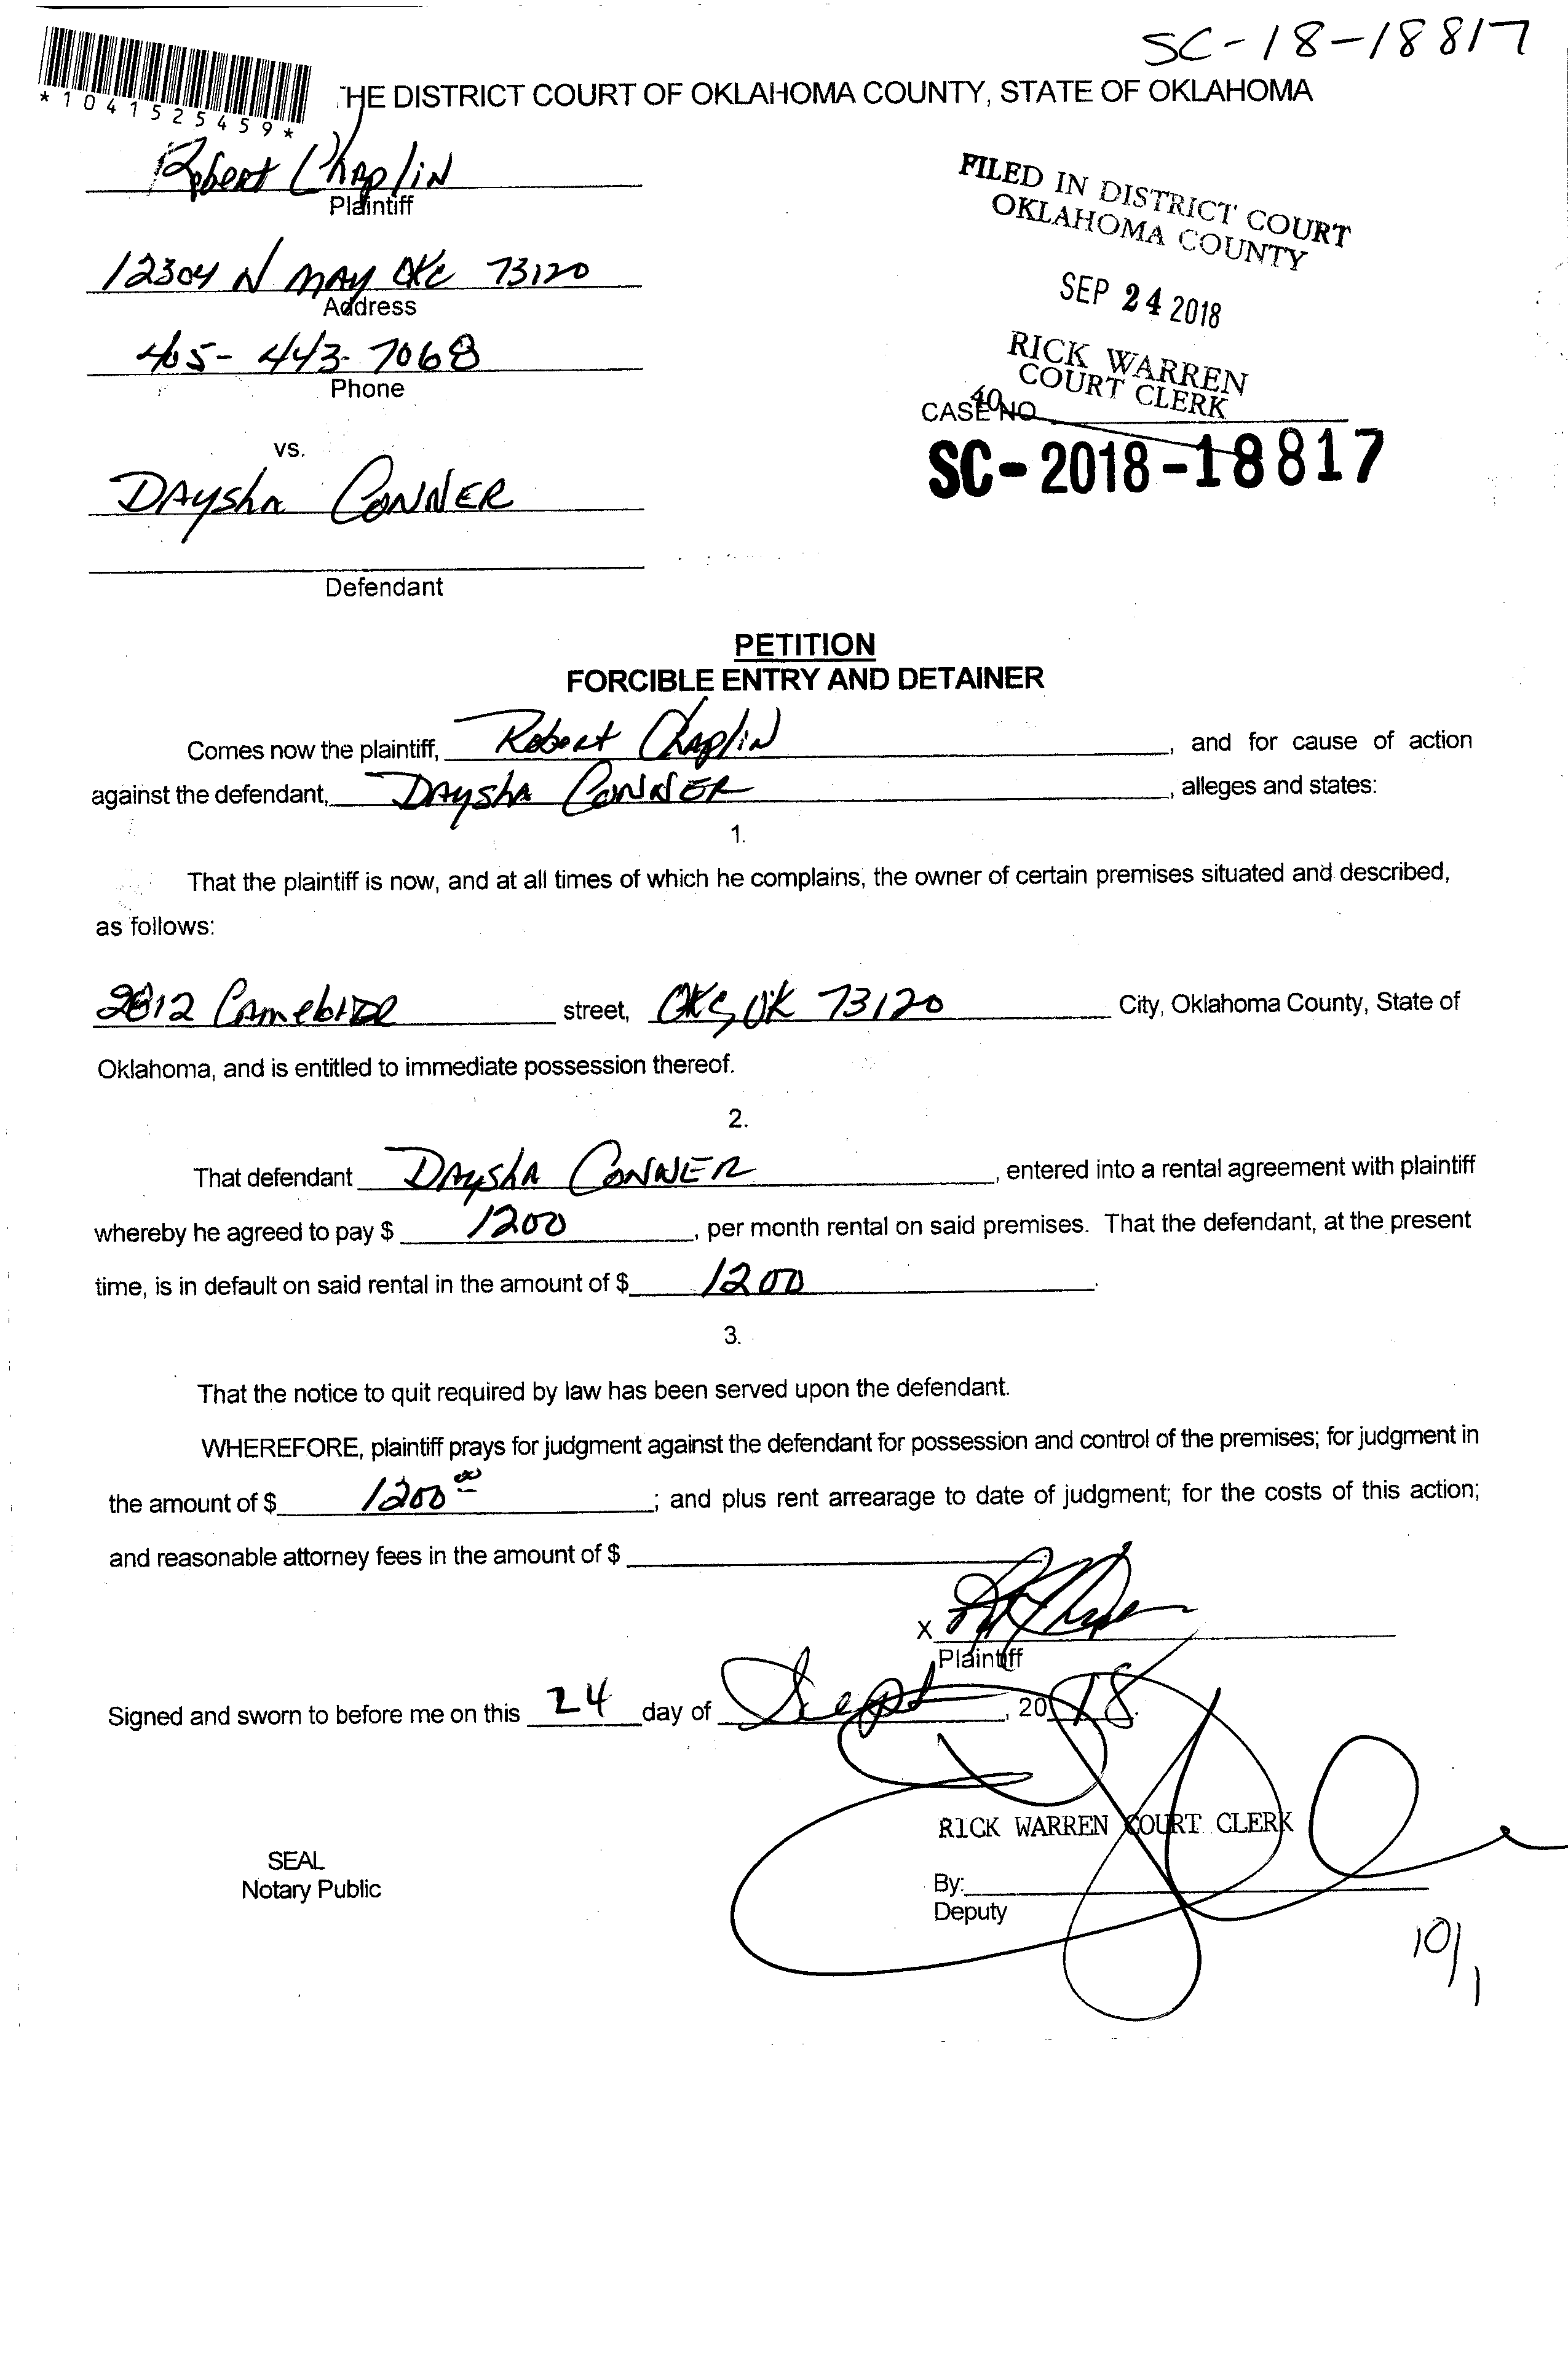 SC-18-18817
*1041525459*
THE DISTRICT COURT OF OKLAHOMA COUNTY, STATE OF OKLAHOMA
Robert Chaplin
Plaintiff
12304 N MAY OKC 73120
Address
405-443-7068
Phone
vs.
DAYShA CONNER
Defendant
FILED IN DISTRICT COURT
OKLAHOMA COUNTY
SEP 24 2018
RICK WARREN
COURT CLERK
40
CASE NO
SC-2018-18817
PETITION
FORCIBLE ENTRY AND DETAINER
Comes now the plaintiff, Robert Chaplin, and for cause of action
against the defendant, DAYShA CONNER, alleges and states:
1.
That the plaintiff is now, and at all times of which he complains, the owner of certain premises situated and described,
as follows:
2812 street, OKC, OK 73120 City, Oklahoma County, State of
Oklahoma, and is entitled to immediate possession thereof.
2.
That defendant DAYShA CONNER, entered into a rental agreement with plaintiff
whereby he agreed to pay $ 1200, per month rental on said premises. That the defendant, at the present
time, is in default on said rental in the amount of $ 1200.
3.
That the notice to quit required by law has been served upon the defendant.
WHEREFORE, plaintiff prays for judgment against the defendant for possession and control of the premises; for judgment in
the amount of $ 1200 00; and plus rent arrearage to date of judgment; for the costs of this action;
and reasonable attorney fees in the amount of $
X
Plaintiff
Signed and sworn to before me on this 24 day of Sept, 2018.
RICK WARREN COURT CLERK
SEAL
Notary Public
By:
Deputy
10/1